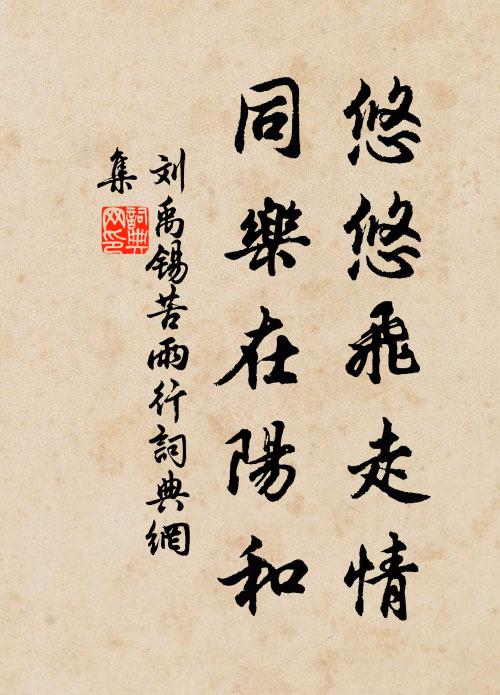 悠悠飛走情
同樂在陽和
刘禹錫苦雨行詞典網
集
詞典
网印